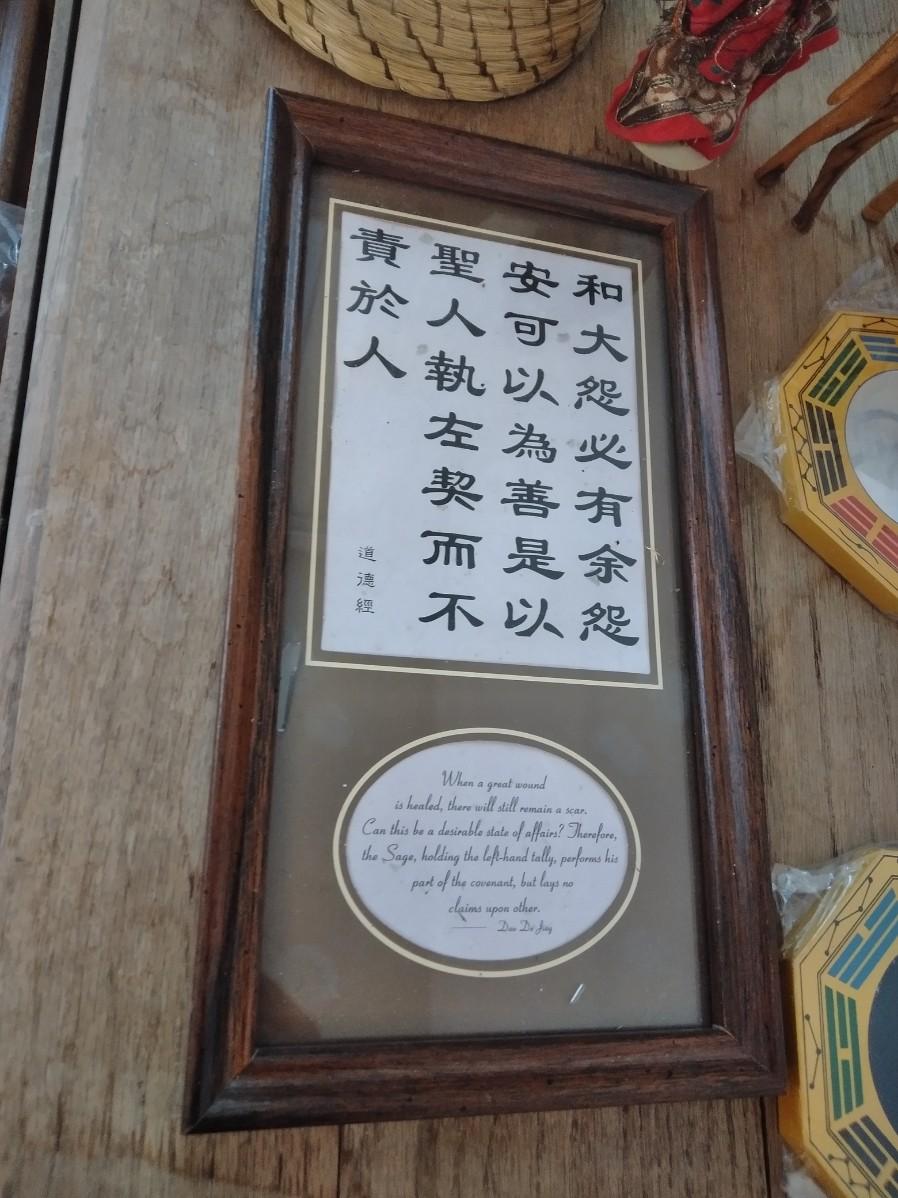 和大怨必有余怨
安可以為善是以
聖人執左契而不
責於人
道德經
When a great wound
is healed, there will still remain a scar.
Can this be a desirable state of affairs? Therefore,
the Sage, holding the left-hand tally, performs his
part of the covenant, but lays no
claims upon other.
Dao De Jing